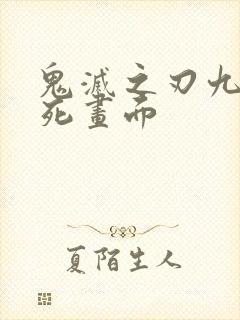 鬼滅之刃九
死畫而
夏陌生人